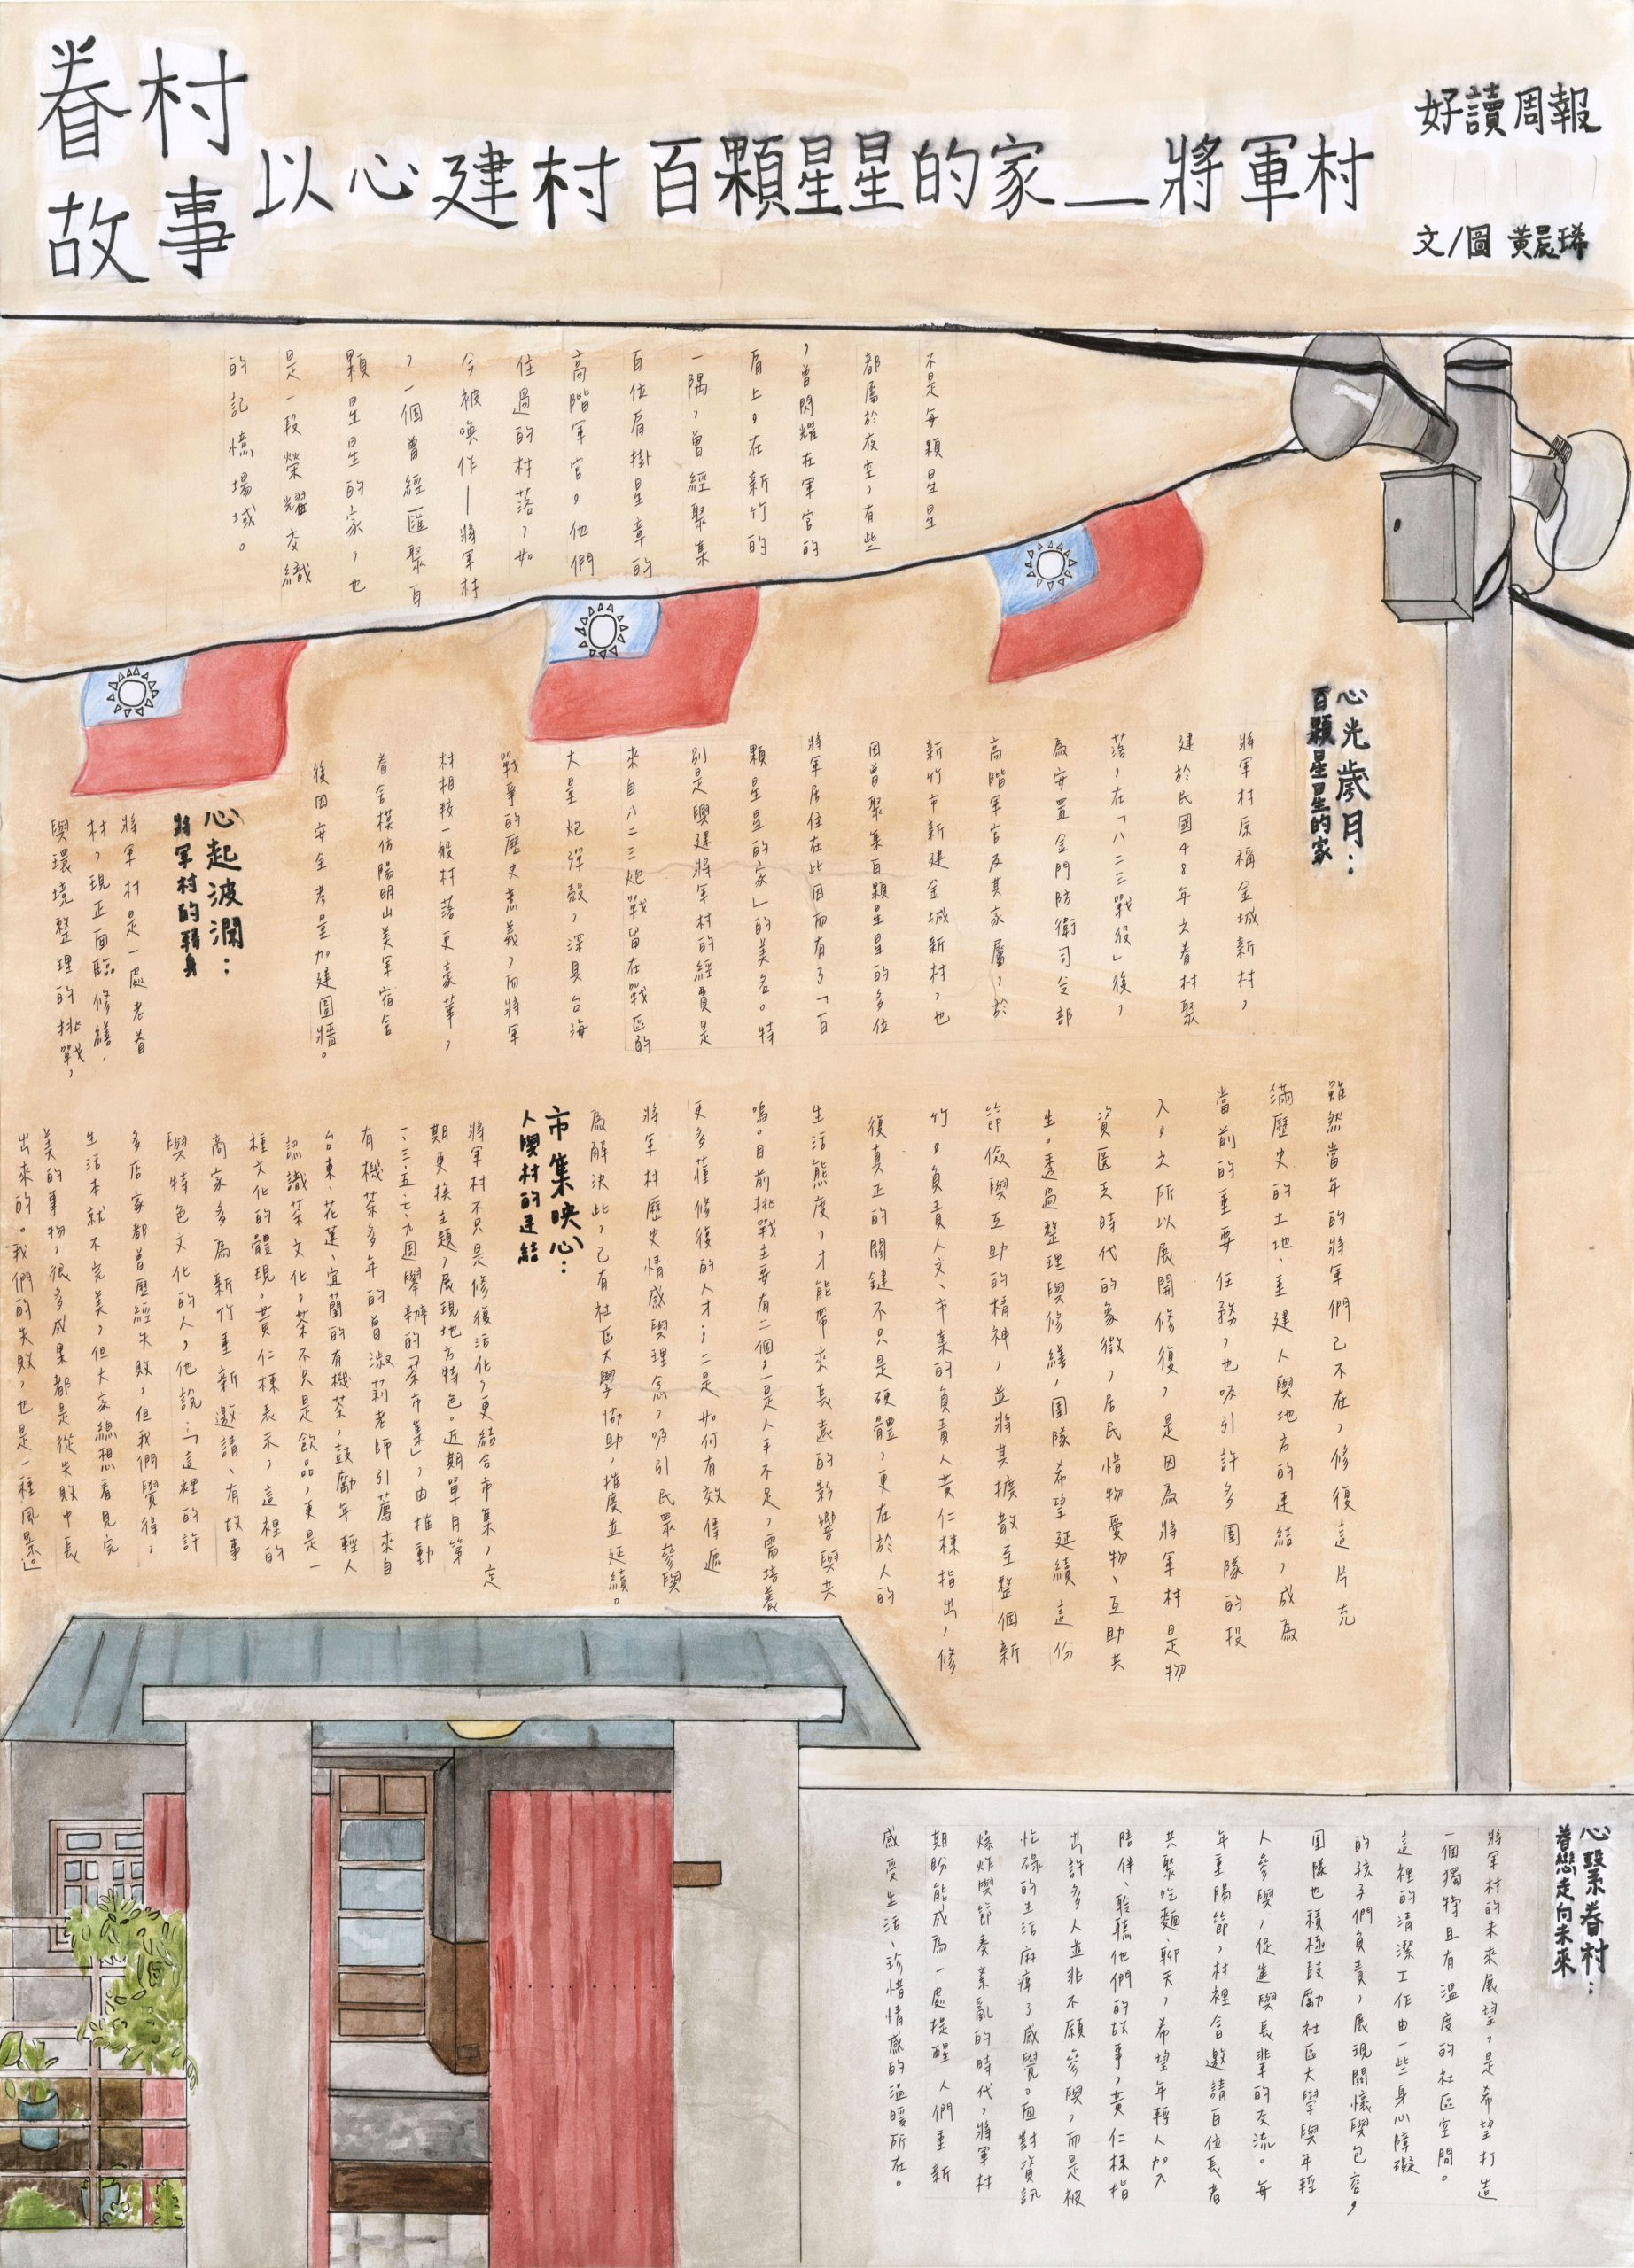 眷村
故事
以心建村 百顆星星的家—將軍村
好讀周報
文/圖 黃晨琋
不是每顆星星
都屬於夜空，有些
，曾閃耀在軍官的
肩上。在新竹的
一隅，曾經聚集
百位肩掛星章的
高階軍官。他們
住過的村落，如
今被喚作—將軍村
，一個曾經匯聚百
顆星星的家，也
是一段榮耀交織
的記憶場域。
心光歲月：
百顆星星的家
將軍村原稱金城新村，
建於民國48年之眷村聚
落，在「八二三戰役」後，
為安置金門防衛司令部
高階軍官及其家屬，於
新竹市新建金城新村，也
因曾聚集百顆星星的多位
將軍居住在此因而有了「百
顆星星的家」的美名。特
別是興建將軍村的經費是
來自八二三炮戰留在戰區的
大量炮彈殼，深具台海
戰爭的歷史意義，而將軍
村相較一般村落更豪華，
眷舍模仿陽明山美軍宿舍
後因安全考量加建圍牆。
心起波瀾：
將軍村的弱身
將軍村是一處老眷
村，現正面臨修繕、
與環境整理的挑戰，
雖然當年的將軍們已不在，修復這片充
滿歷史的土地、重建人與地方的連結，成為
當前的重要任務，也吸引許多團隊的投
入。之所以展開修復，是因為將軍村是物
資匱乏時代的象徵，居民惜物愛物、互助共
生。透過整理與修繕，團隊希望延續這份
節儉與互助的精神，並將其擴散至整個新
竹。負責人文、市集的負責人黃仁棟指出，修
復真正的關鍵不只是硬體，更在於人的
生活態度，才能帶來長遠的影響與共
鳴。目前挑戰主要有二個，一是人手不足，需培養
更多懂修復的人才；二是如何有效傳遞
將軍村歷史情感與理念，吸引民眾參與
為解決此，已有社區大學協助，推廣並延續。
市集映心：
人與村的連結
將軍村不只是修復活化，更結合市集，定
期更換主題，展現地方特色。近期單月第
一、三、五、七、九週舉辦的「茶市集」，由推動
有機茶多年的曾淑莉老師引薦來自
台東、花蓮、宜蘭的有機茶，鼓勵年輕人
認識茶文化，茶不只是飲品，更是一
種文化的體現。黃仁棟表示，這裡的
商家多為新竹重新邀請、有故事
與特色文化的人，他說：「這裡的許
多店家都曾歷經失敗，但我們覺得，
生活本就不完美，但大家總想看見完
美的事物，很多成果都是從失敗中長
出來的。我們的失敗，也是一種風景。」
心繫眷村：
眷戀走向未來
將軍村的未來展望，是希望打造
一個獨特且有溫度的社區空間。
這裡的清潔工作由一些身心障礙
的孩子們負責，展現關懷與包容。
團隊也積極鼓勵社區大學與年輕
人參與，促進與長輩的交流。每
年重陽節，村裡會邀請百位長者
共聚吃麵、聊天，希望年輕人加入
陪伴、聆聽他們的故事，黃仁棟指
出許多人並非不願參與，而是被
忙碌的生活麻痺了感覺。面對資訊
爆炸與節奏紊亂的時代，將軍村
期盼能成為一處提醒人們重新
感受生活、珍惜情感的溫暖所在。